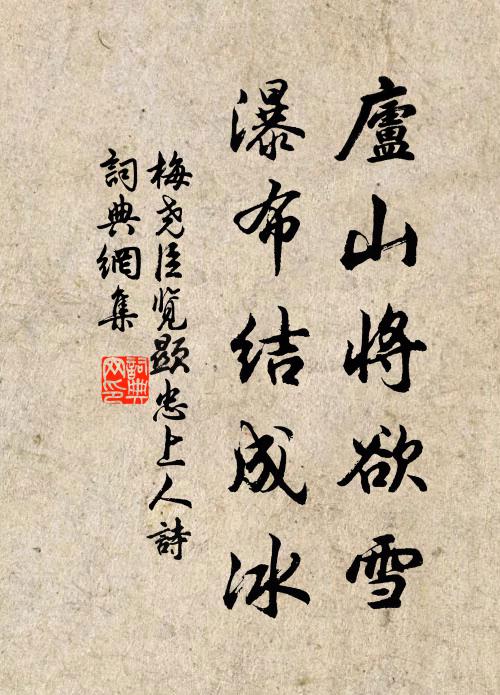 廬山將欲雪
瀑布結成冰
梅堯臣覽顯忠上人詩
詞典網集
詞典
网印